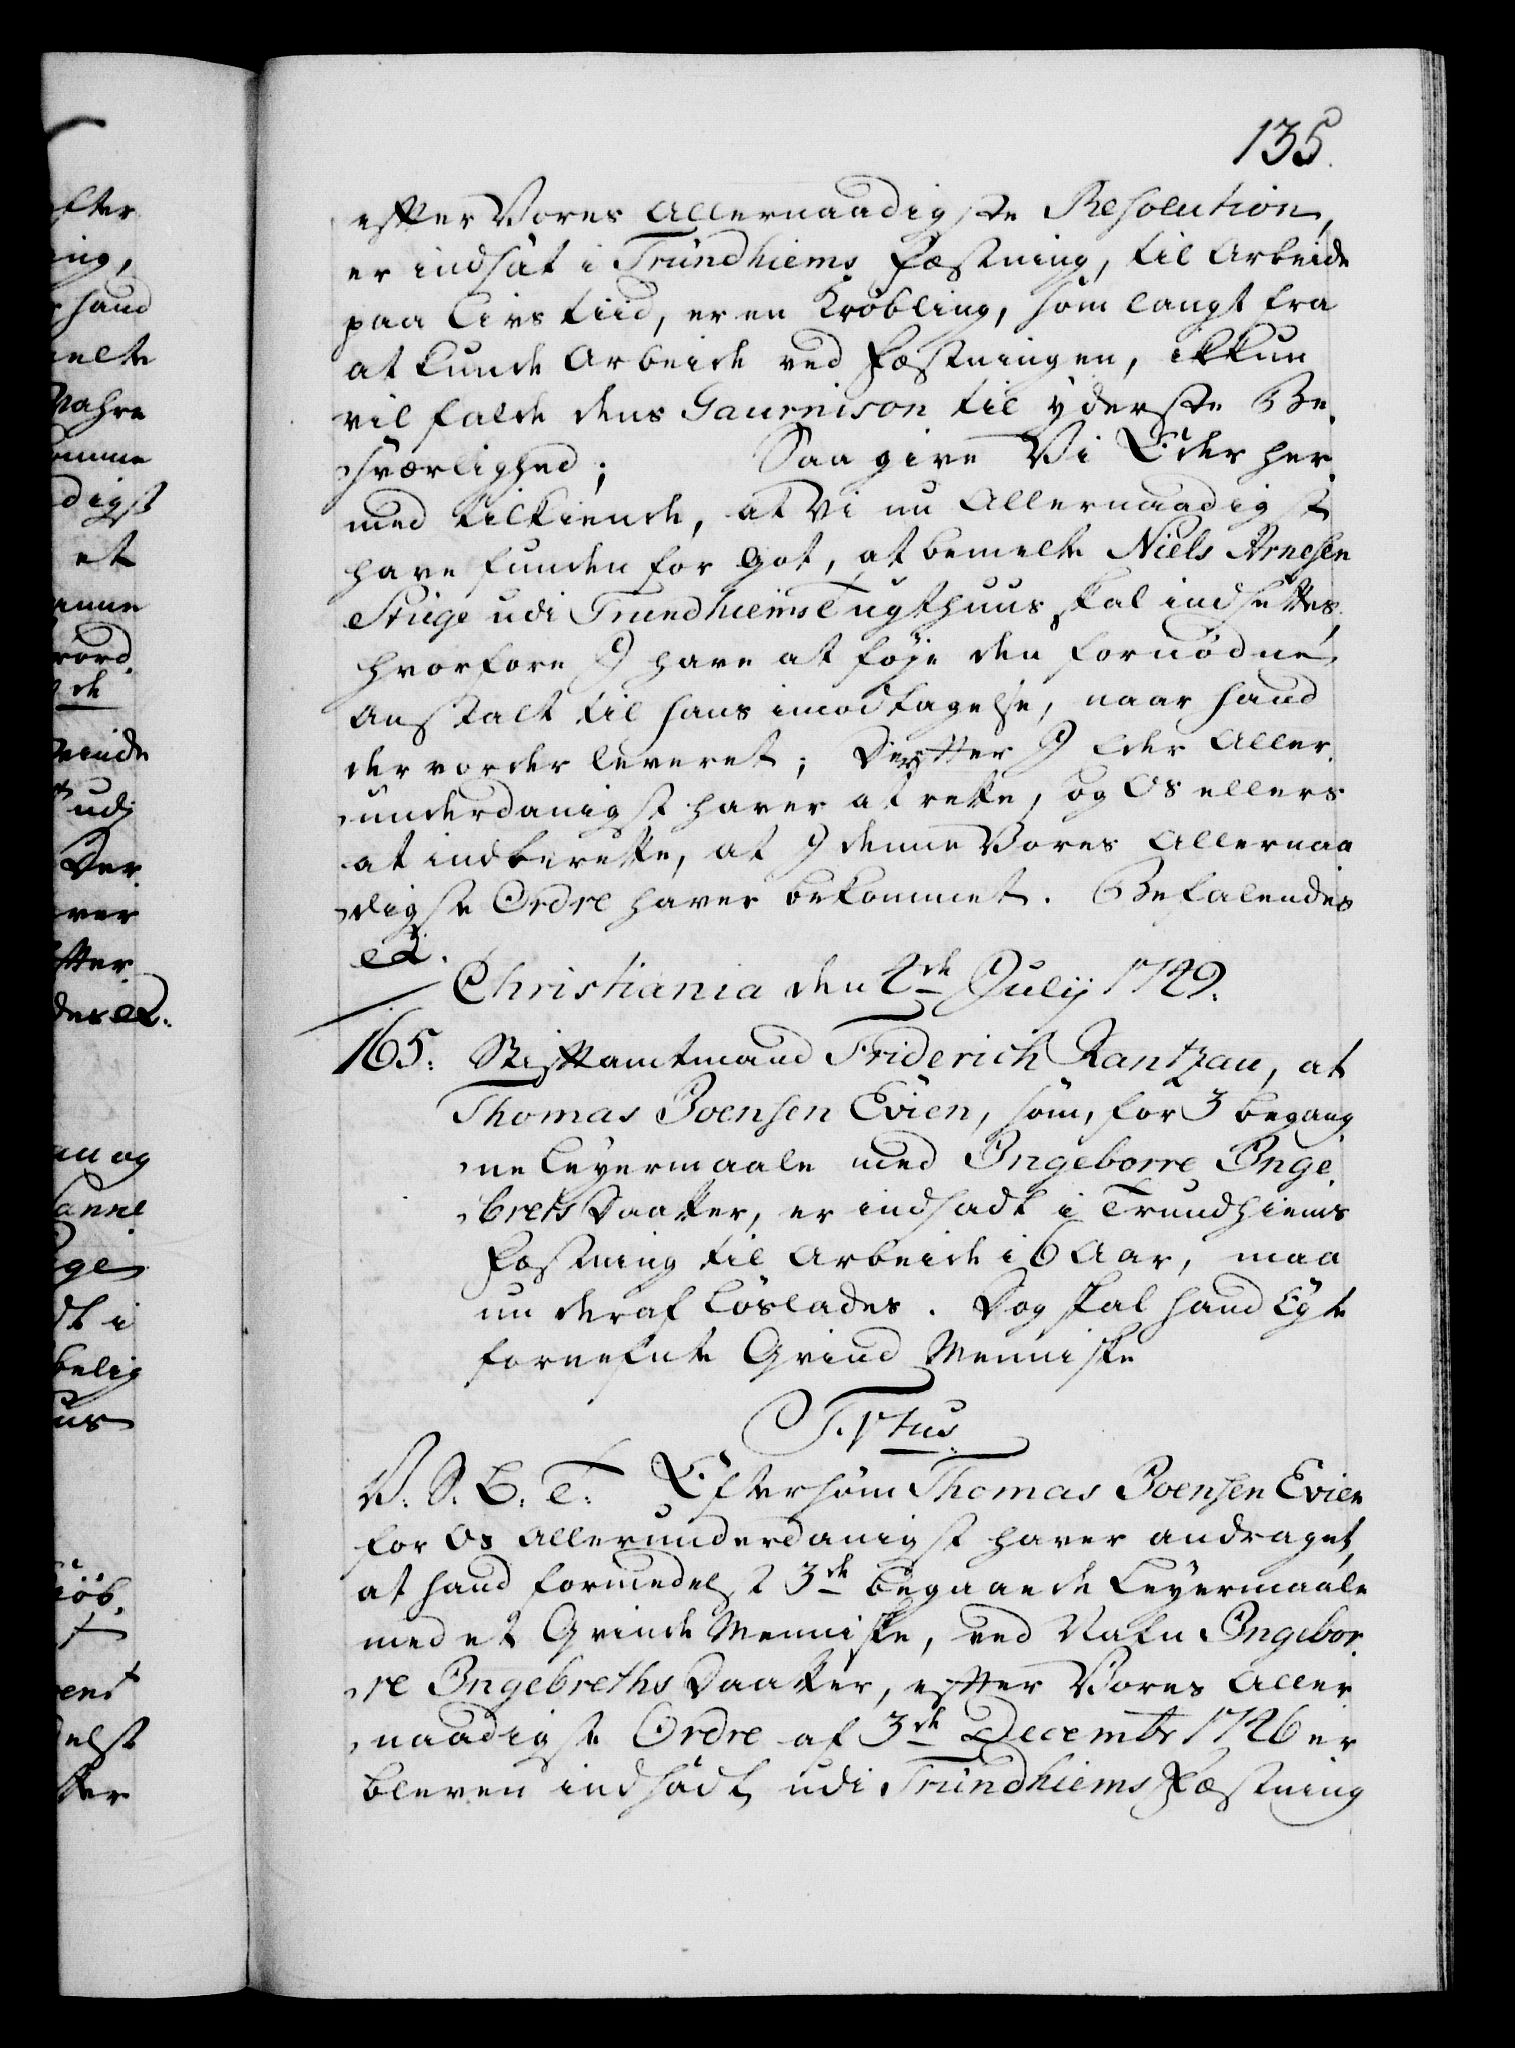 135.
efter Vores Allernaadigste Resolution,
er indsat i Trundhiems Fæstning, til Arbeide
paa Livs tiid, er en Krøbling, som langt fra
at kunde Arbeide ved Fæstningen, ikkun
vil falde dens Gaurnison til yderste Be-
sværlighed; Saa give Vi Eder her-
med tilkiende, at Vi nu Allernaadigst
have funden for got, at bemelte Niels Arnesen
Stuge udi Trundhiems Tugthuus skal indsettes,
hvorfore I have at føje den fornødne
Anstalt til hans imodtagelse, naar hand
der vorder leveret; Derefter I Eder Aller-
underdanigst haver at rette, og Os ellers
at indberette, at I denne Vores Allernaa-
digste Ordre haver bekommet. Befalendes
etc.
Christiania den 2de Julij 1749.
165. Stiftamtmand Friderich Rantzau, at
Thomas Joensen Evien, som, for 3 begang-
ne Leyermaale med Ingeborre Inge-
brets Daatter, er indsadt i Trundhiems
Fæstning til Arbeide i 6 Aar, maa
nu deraf løslades. Dog skal hand Egte
fornefnte Qvind Menniske
T. Vtus.
V. S. G. T. Eftersom Thomas Joensen Evien
for Os Allerunderdanigst haver andraget,
at hand formedelst 3de begaaede Leyermaale
med et Qvinde Menniske, ved Nafn Ingebor-
re Ingebreths Daatter, efter Vores Aller-
naadigste Ordre af 3de Decembr 1746 er
bleven indsadt udi Trundhiems Fæstning